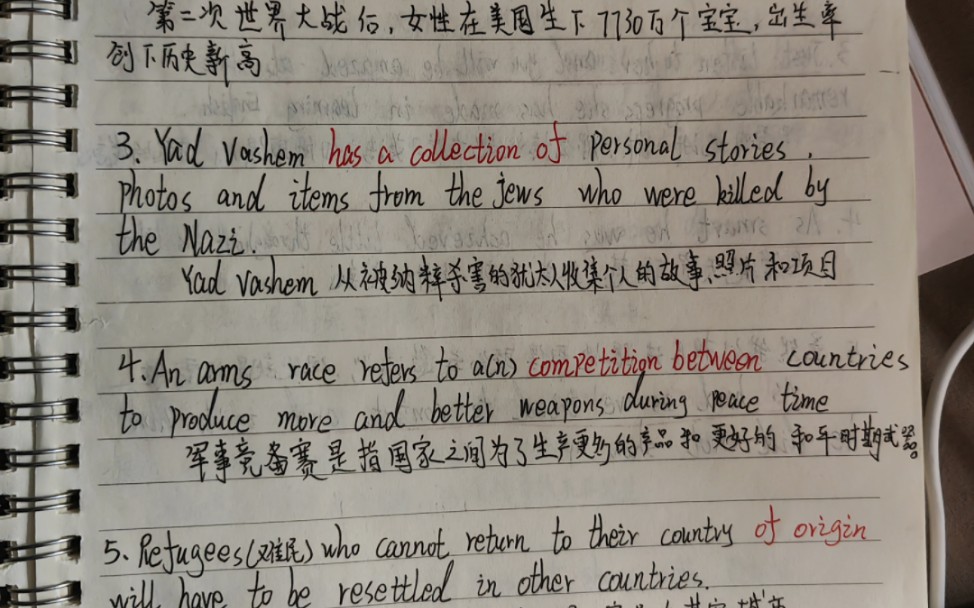 第二次世界大战后，女性在美国生下7730万个宝宝，出生率
创下历史新高
3. Yad Vashem has a collection of personal stories,
photos and items from the jews who were killed by
the Nazi.
Yad Vashem 从被纳粹杀害的犹太人收集个人的故事、照片和项目
4. An arms race refers to a(n) competition between countries
to produce more and better weapons during peace time
军事竞备赛是指国家之间为了生产更多的产品和更好的和平时期武器
5. Refugees(难民) who cannot return to their country of origin
will have to be resettled in other countries.